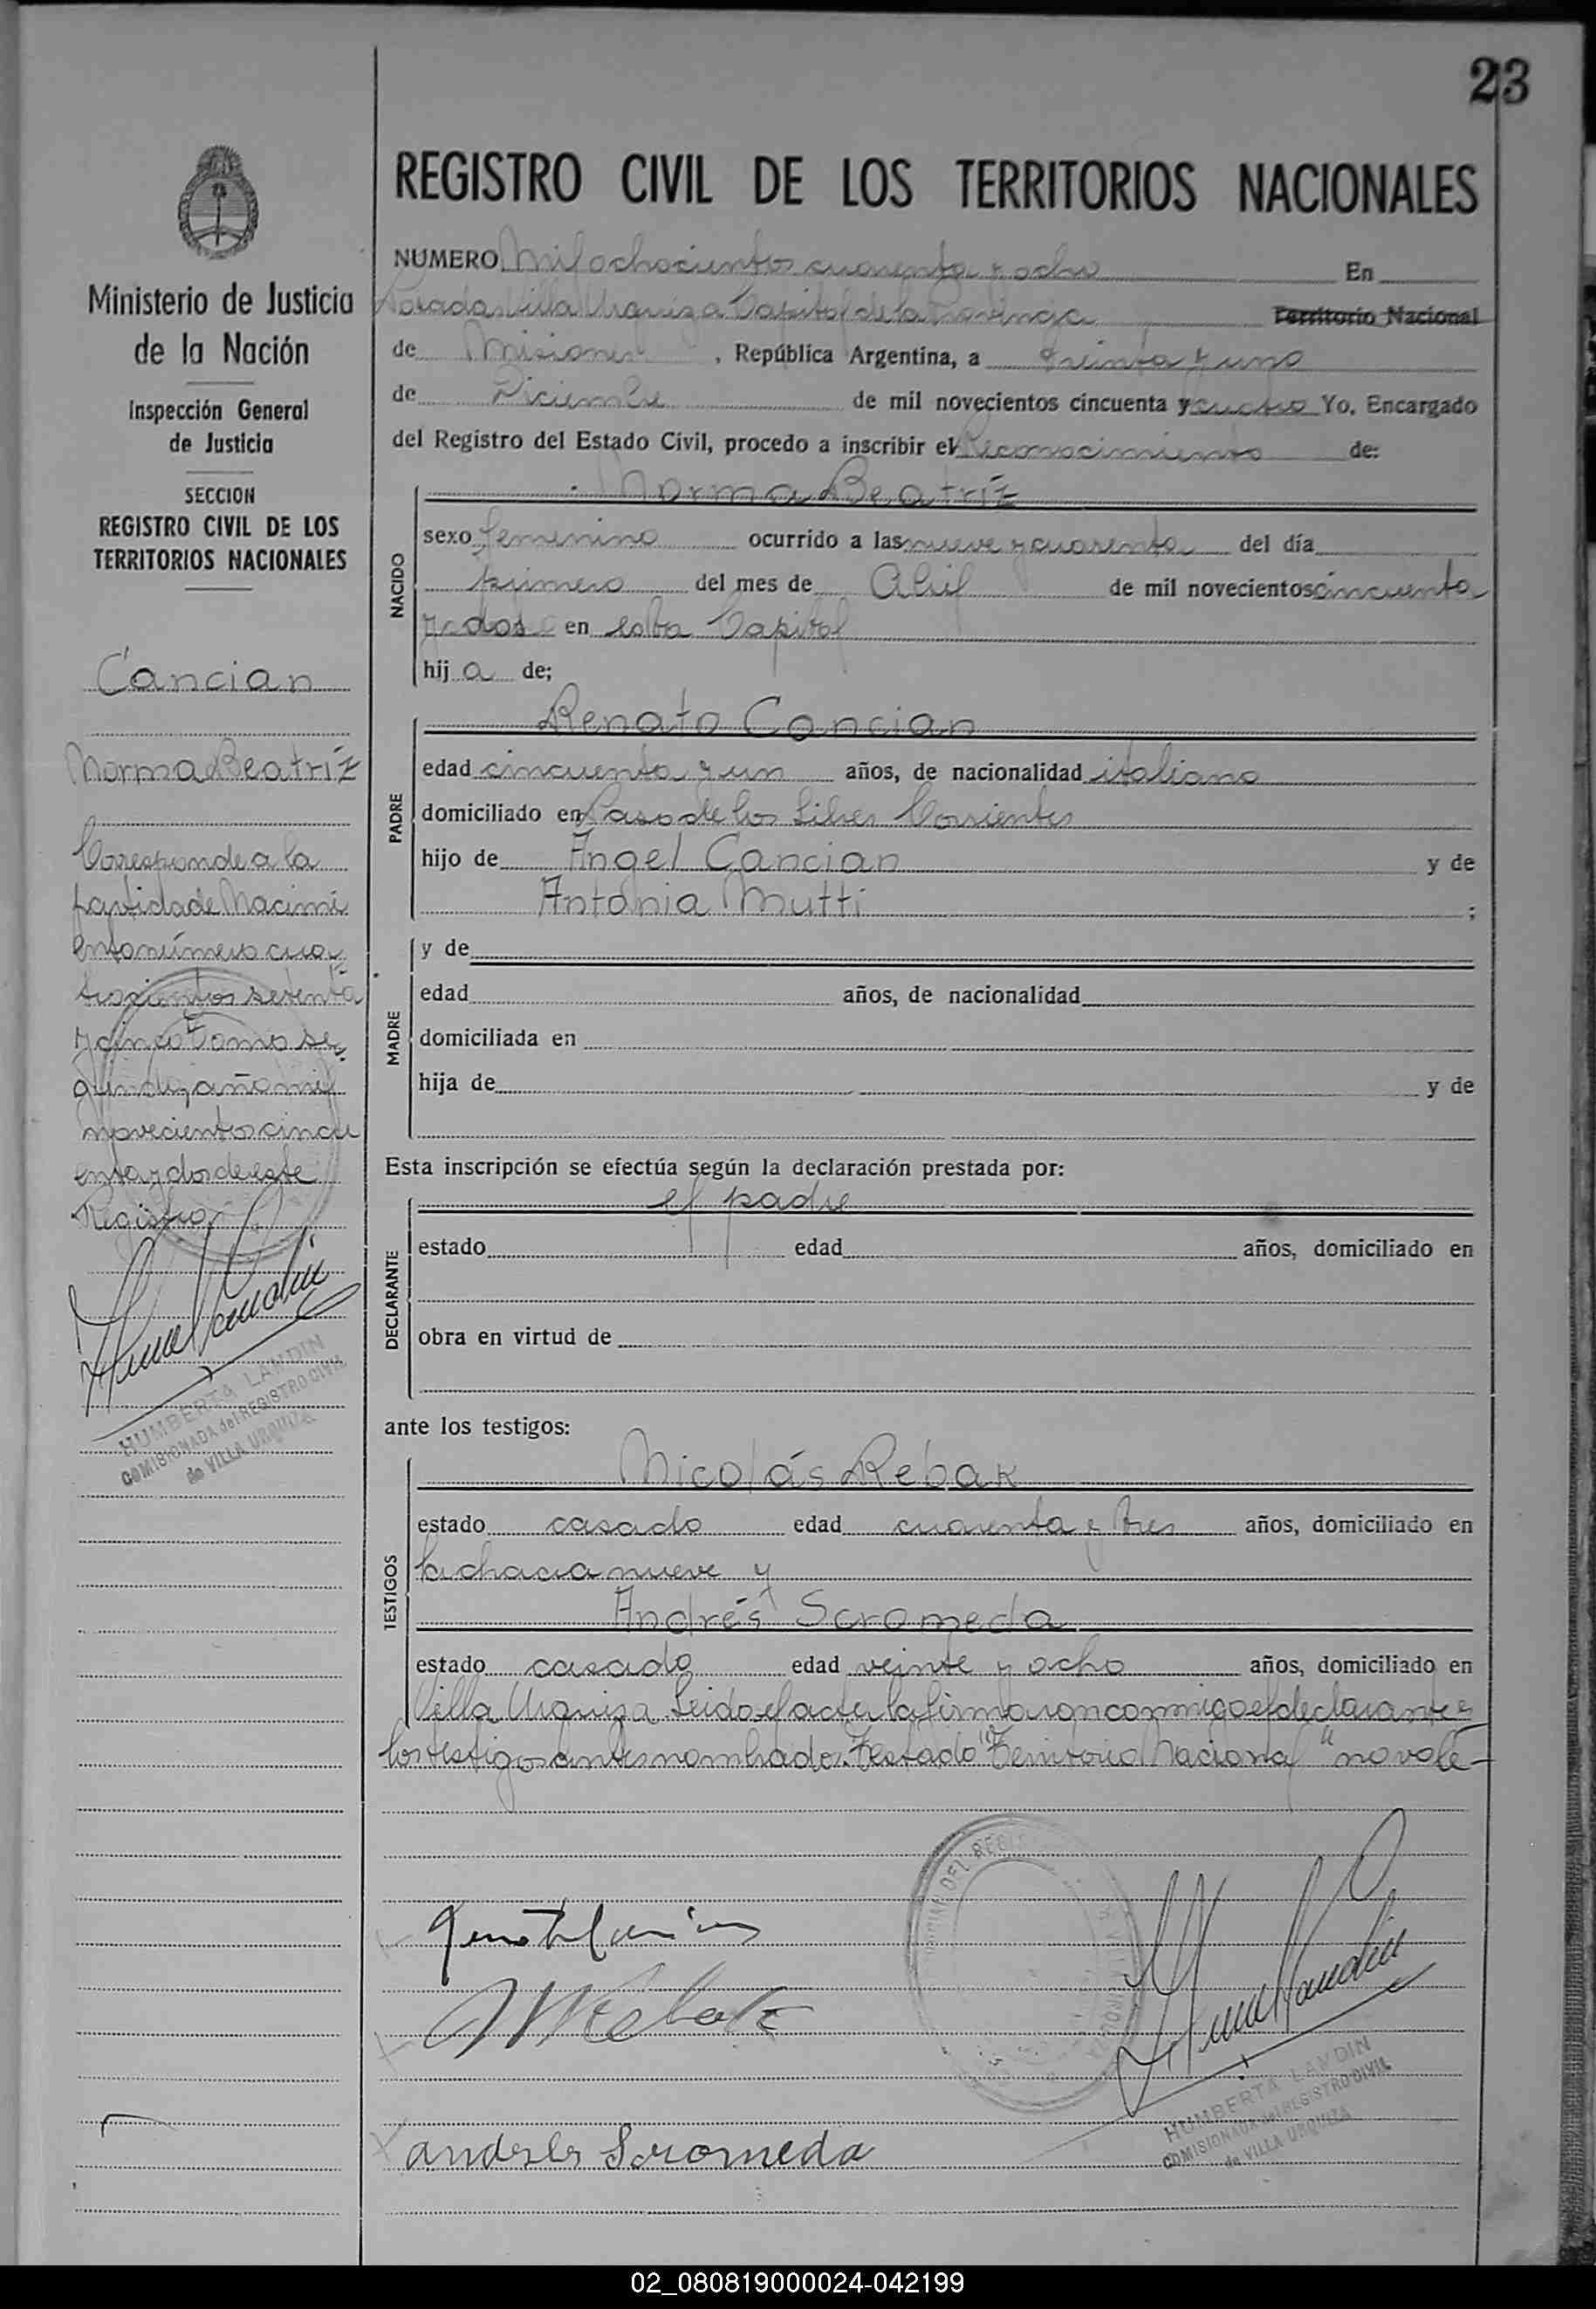 23
REGISTRO CIVIL DE LOS TERRITORIOS NACIONALES
Ministerio de Justicia
de la Nación
Inspección General
de Justicia
SECCION
REGISTRO CIVIL DE LOS
TERRITORIOS NACIONALES
Cancian
Norma Beatríz
Corresponde a la
partida de Nacimi
ento número cua
trocientos setenta
y cinco Tomo se
gundo, año mil
novecientos cincu
enta y dos de este
Registro
HUMBERTA LANDIN
COMISIONADA del REGISTRO CIVIL
de VILLA URQUIZA
NUMERO Mil ochocientos cuarenta y ocho En
Posadas Villa Urquiza Capital de la Provincia Territorio Nacional
de Misiones, República Argentina, a treinta y uno
de Diciembre de mil novecientos cincuenta y cuatro Yo, Encargado
del Registro del Estado Civil, procedo a inscribir el Reconocimiento de:
NACIDO
Norma Beatríz
sexo femenino ocurrido a las nueve y cuarenta del día
primero del mes de Abril de mil novecientos cincuenta
y dos en esta Capital
hij a de;
PADRE
Renato Cancian
edad cincuenta y un años, de nacionalidad italiano
domiciliado en Paso de los Libres Corrientes
hijo de Angel Cancian y de
Antonia Mutti ;
MADRE
y de
edad años, de nacionalidad
domiciliada en
hija de y de
Esta inscripción se efectúa según la declaración prestada por:
DECLARANTE
el padre
estado edad años, domiciliado en
obra en virtud de
ante los testigos:
TESTIGOS
Nicolás Rebak
estado casado edad cuarenta y tres años, domiciliado en
la chacra nueve y
Andrés Scromeda
estado casado edad veinte y ocho años, domiciliado en
Villa Urquiza Leido el acta la firmaron conmigo el declarante y
los testigos antes nombrados. Testado "Territorio Nacional" no vale-
andrés Scromeda
HUMBERTA LANDIN
COMISIONADA del REGISTRO CIVIL
de VILLA URQUIZA
02_080819000024-042199